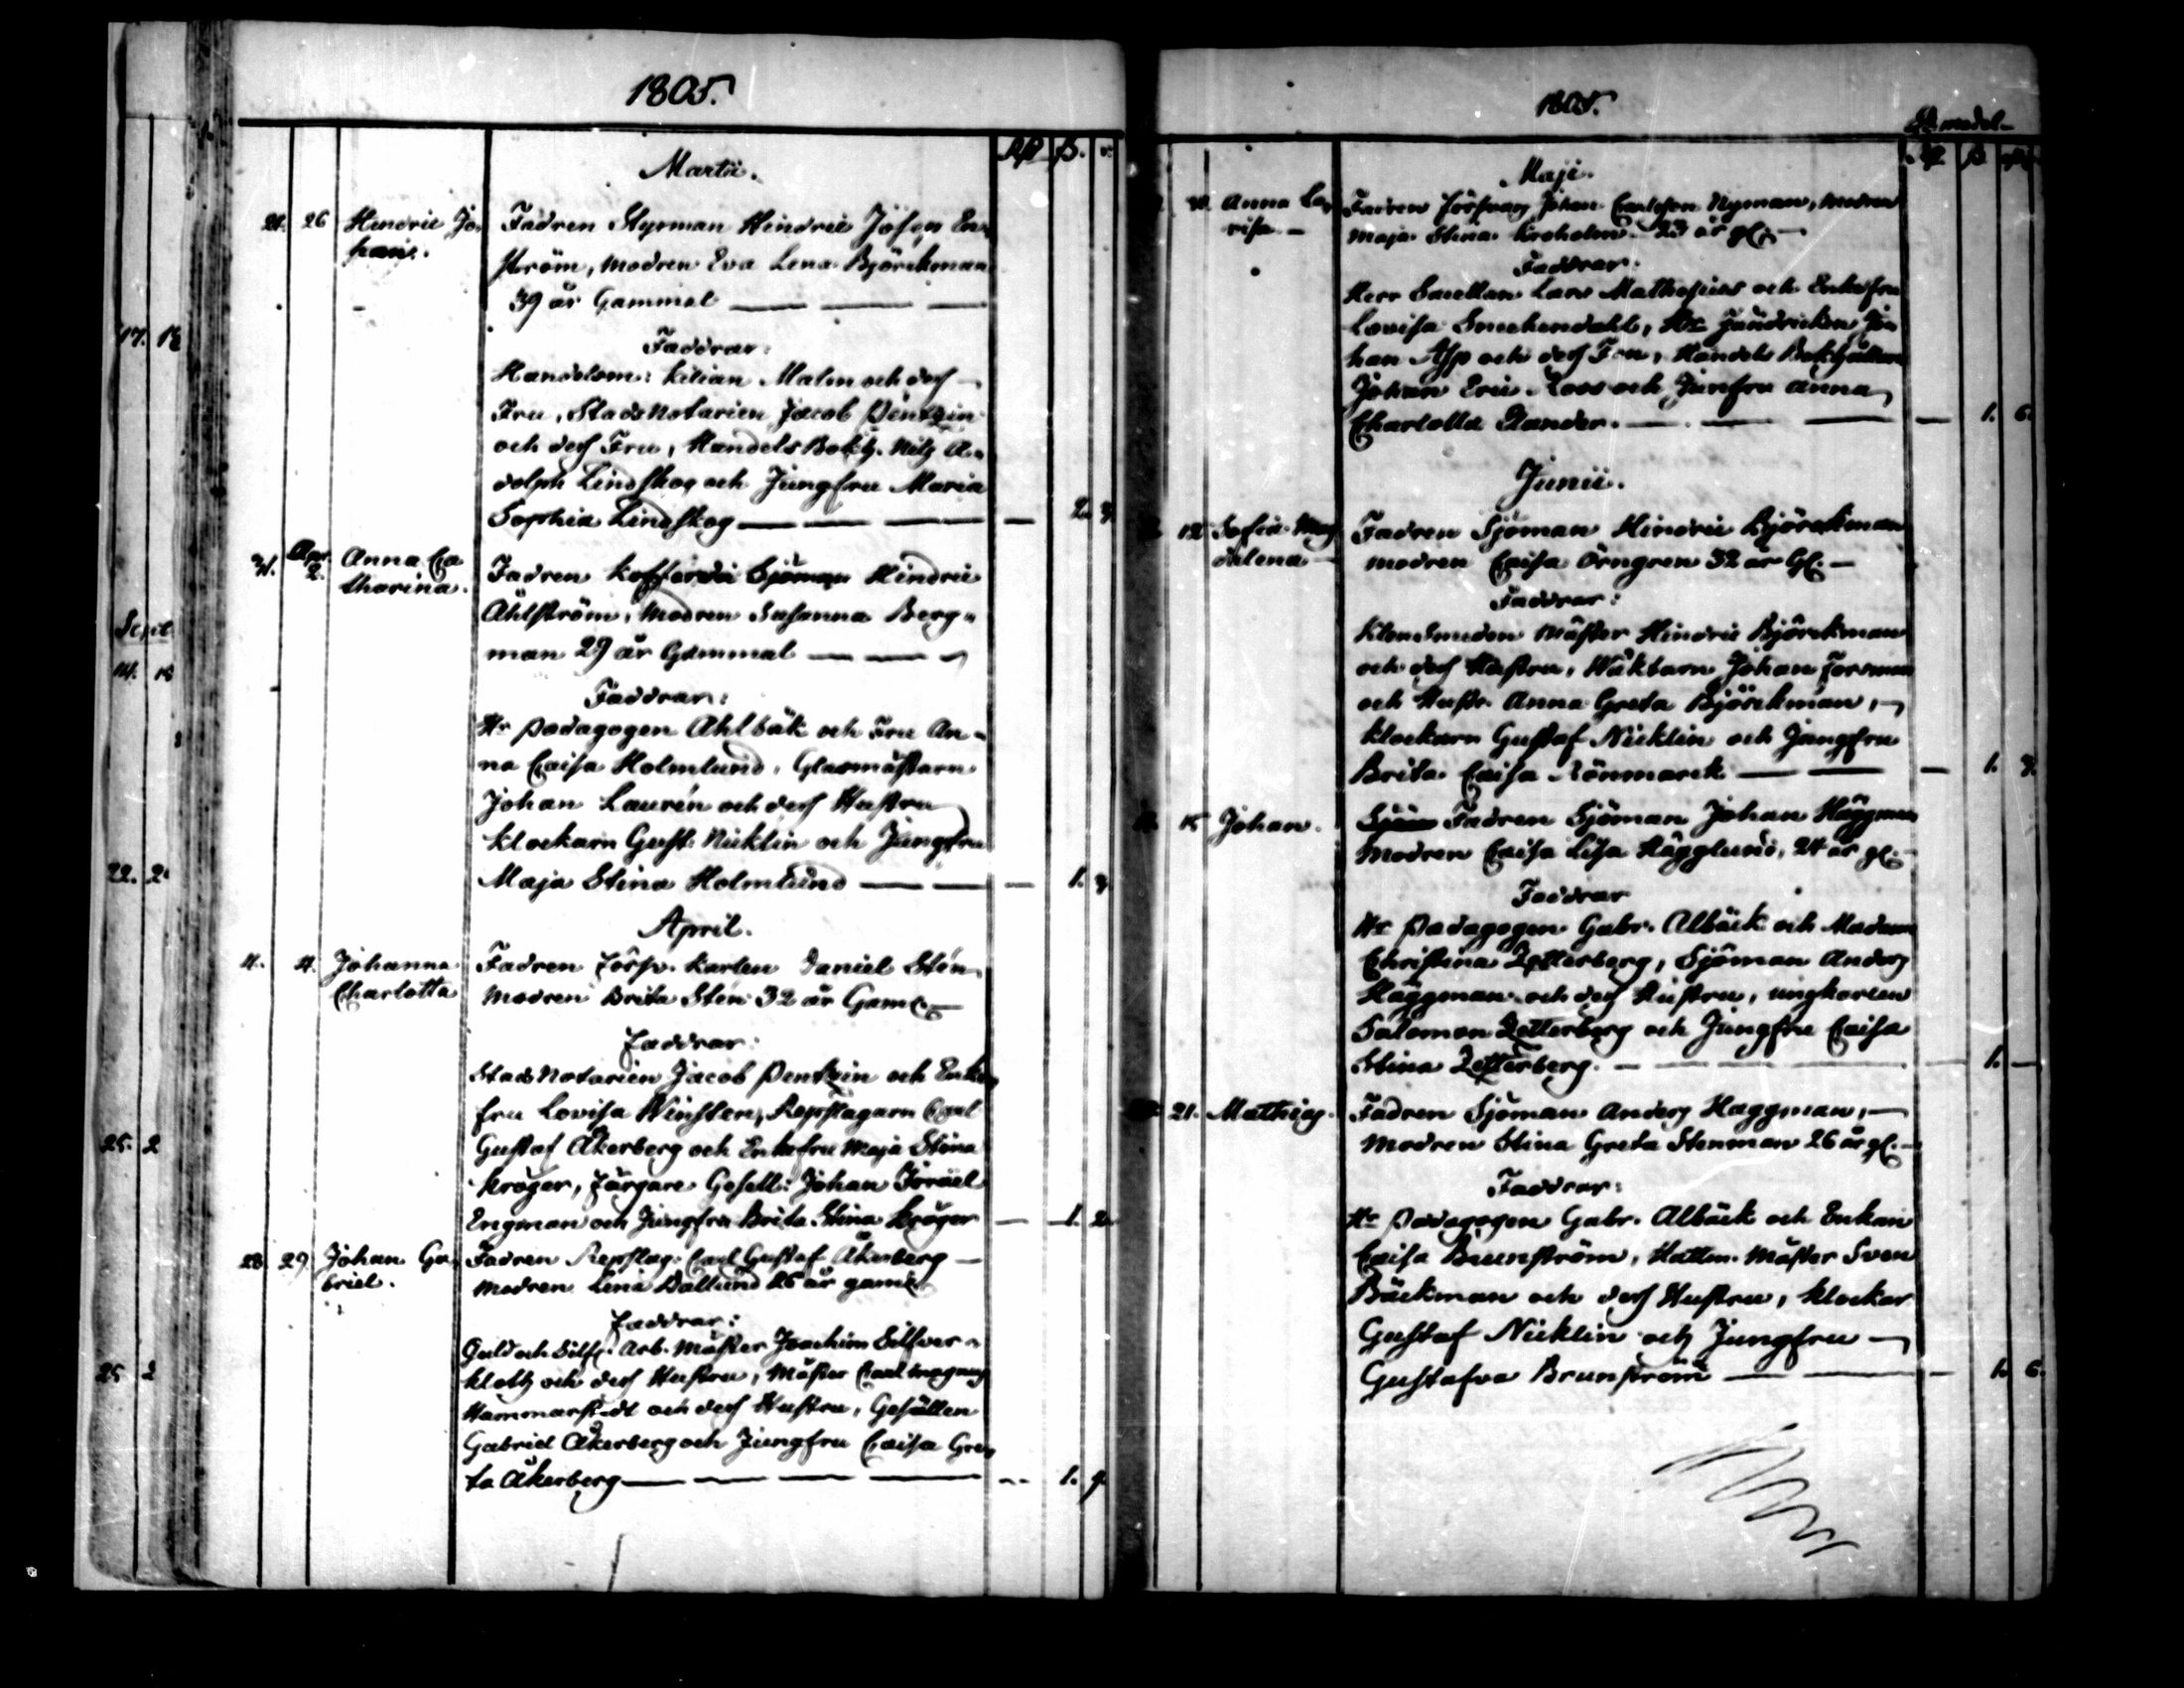 1805.
Rß ß. r.
Martii.
21. 26 Hendric Jo- Fadren Styrman Hindric Jösep En-
han. ström, Modren Eva Lena Björckman
39 år Gammal
Faddrar:
Handelsm: Kilian Malm och dess
Fru, StadsNotarien Jacob Pentzin
och dess Fru, HandelsBokh. Nils A-
dolph Lindskog och Jungfru Maria
Sophia Lindskog — 2.
31. Apr. 2. Anna Ca- Fadren Kofferdi Sjöman Hindric
tharina. Åhlström, Modren Susanna Berg-
man 29 år Gammal
Faddrar:
Hr Pædagogen Ahlbäk och Fru An-
na Caisa Holmlund, Glasmästarn
Johan Laurén och dess Hustru
klockarn Gust. Nicklin och Jungfru
Maja Stina Holmlund — 1.
April.
4. 4. Johanna Fadren Försv. Karlen Daniel Stén
Charlotta Modren Brita Stén 32 år Gaml.
Faddrar:
StadsNotarien Jacob Pentzin och Enke-
fru Lovisa Winsten, Repslagarn Carl
Gustaf Åkerberg och Enkefru Maja Stina
Kröger, Färgare Gesell: Johan Israël
Engman och Jungfru Brita Stina Kröger — 1. 2.
28. 29. Johan Ga- Fadren Repslag. Carl Gustaf Åkerberg
briel. Modren Lena Dallund 26 år gaml.
Faddrar:
Guld och Silfr. Arb. Mäster Joachim Silfver-
klotz och dess Hustru, Mäster Carl
Hammarstedt och dess Hustru, Gesällen
Gabriel Åkerberg och Jungfru Caisa Gre-
ta Åkerberg — 1.
17.
Sept
14.
22. 2
25. 2
25 2
1805.
Maji.
Anna Lo- Fadren Försvars Johan Carlsson Nyman, Modren
visa Maja Stina Kroholm 23 år gl.
Faddrar:
Herr Lars Mathesius och Enkefru
Lovisa, Hr Fändricken Jo-
han Asp och dess Fru, Handels Bokhållarn
Johan Eric Roos och Junfru Anna
Charlotta Gander. — 1. 6.
Junii.
12 Sofia Mag- Fadren Sjöman Hindric Björckman
dalena modren Caisa Örngren 32 år Gl.
Faddrar:
KlenSmeden Mäster Hindric Björckman
och dess Hustru, Wäktarn Johan Forsman
och Hustr. Anna Greta Björckman,
klockarn Gustaf Nicklin och Jungfru
Brita Caisa Rönmarck — 1.
15 Johan. Fadren Sjöman Johan Häggman
Modren Caisa Lisa Hägglund, 24 år gl.
Faddrar
Hr Pædagogen Gabr. Albäck och Madam
Christina Zetterberg, Sjöman Anders
Häggman och dess Hustru, ungkarlen
Salomon Zetterberg och Jungfru Caisa
Stina Zetterberg. — 1. —
21. Mathias. Fadren Sjöman Anders Häggman,
Modren Stina Greta Stenman 26 år gl.
Faddrar:
Hr Pædagogen Gabr. Albäck och Enkan
Caisa Brunström, Hattm. Mäster Sven
Bäckman och dess Hustru, klockar
Gustaf Nicklin och Jungfru
Gustafva Brunström — 1. 6.